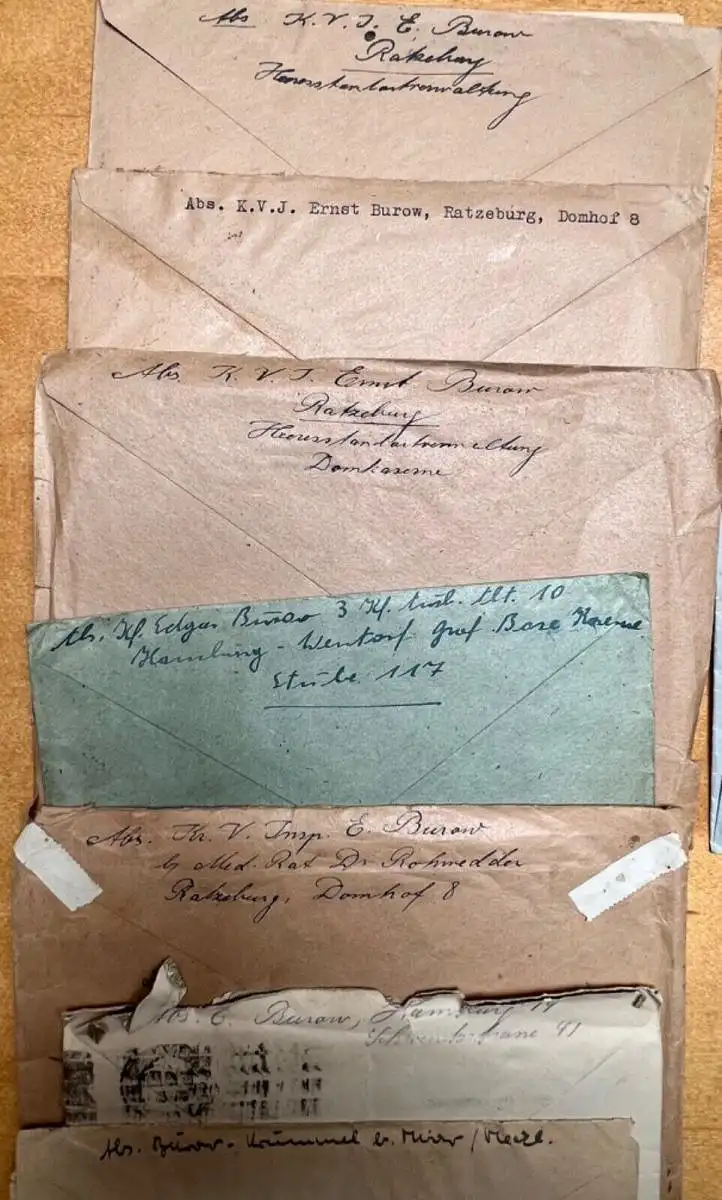 Abs K. V. J. E. Burow
Ratzeburg
Heeresstandortverwaltung
Abs. K.V.J. Ernst Burow, Ratzeburg, Domhof 8
Abs. K. V. J. Ernst Burow
Ratzeburg
Heeresstandortverwaltung
Domkaserne
Abs. Kf. Edgar Burow 3 Kf. Abt. 10
Hamburg - Wentorf Graf Bose Kaserne
Stube 117
Abs. Kr. V. Insp. E. Burow
b. Med. Rat Dr Rohwedder
Ratzeburg, Domhof 8
Abs. E. Burow, Hamburg 19
41
Abs. Burow - Krümmel b. Mirow / Meckl.